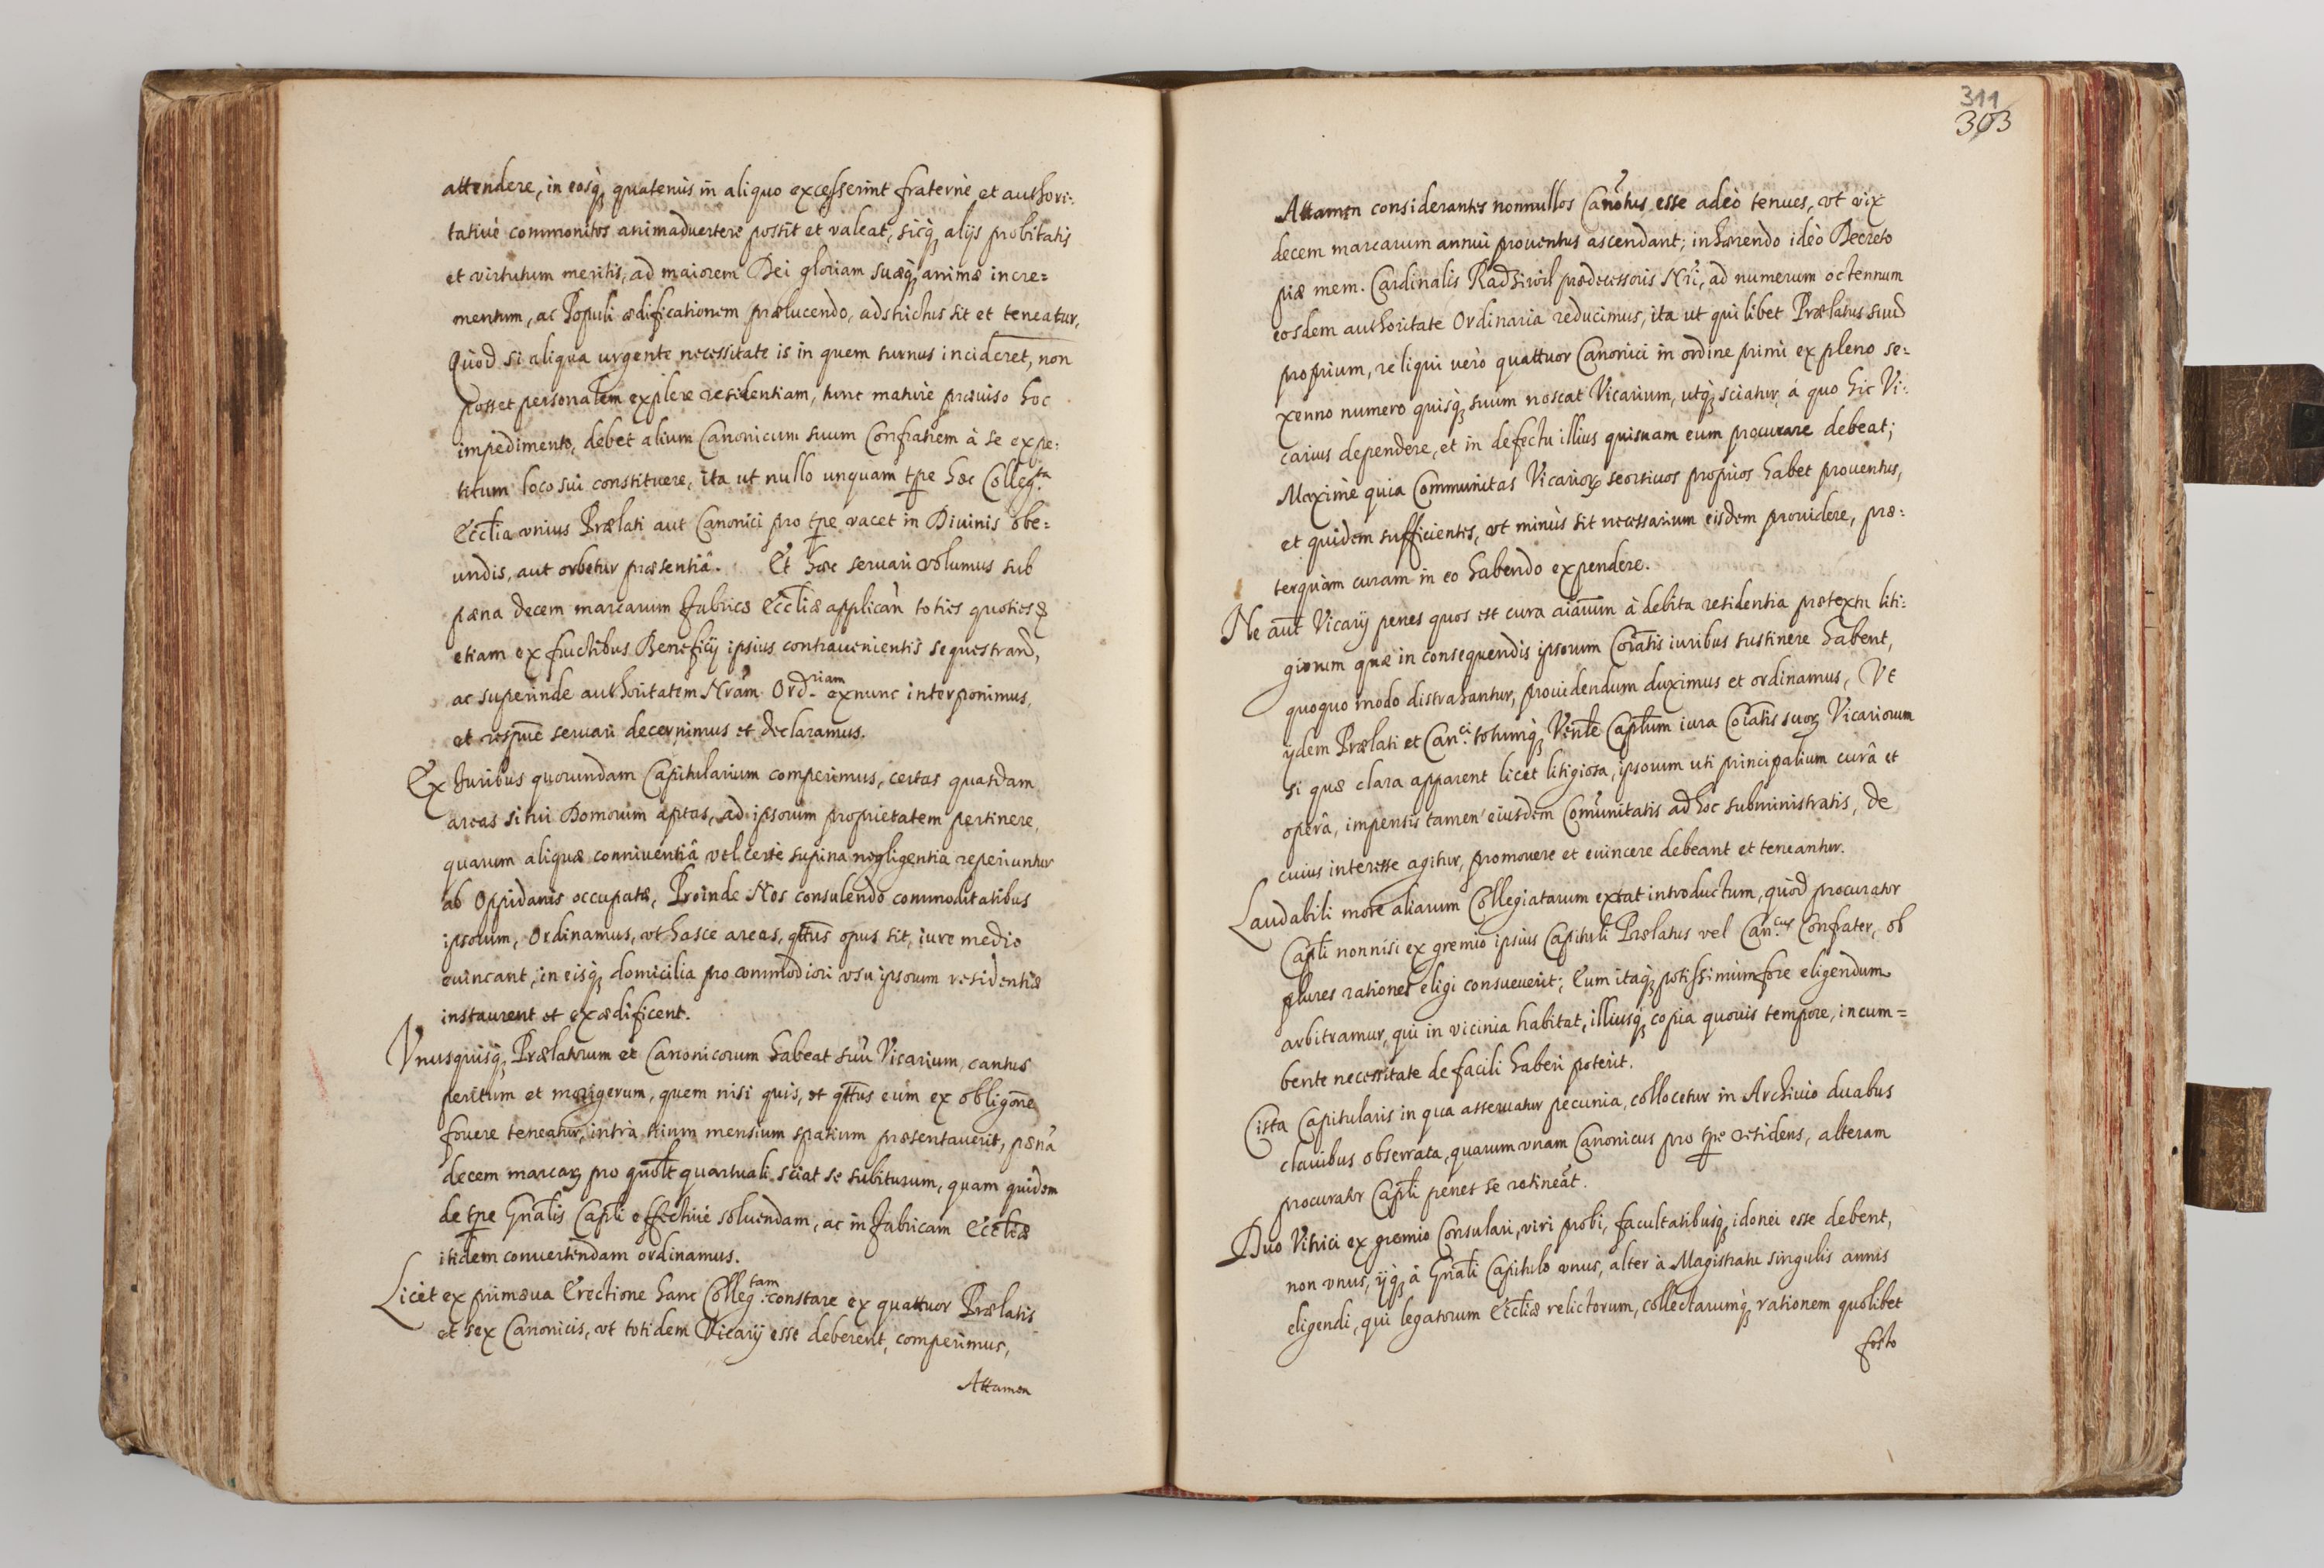 attendere, in eosqꝫ quatenus in aliquo excesserint fraternè et authori=
tatiuè commonitos animaduertere possit et valeat, sicqꝫ alijs probitatis
et virtutum meritis, ad maiorem Dei gloriam suæqꝫ animæ incre=
mentum, ac Populi ædificationem prælucendo, adstrictus sit et teneatur,
Quod si aliqua urgente necessitate is in quem turnus incideret, non
posset personalem explere residentiam, tunc maturè præuiso hoc
impedimento, debet alium Canonicum suum Confratrem à se expe=
titum loco sui constituere, ita ut nullo unquam tp̄re hæc Colleg.ta
Eccl̄ia vnius Prælati aut Canonici pro tp̄re vacet in Diuinis obe=
undis, aut orbetur præsentiâ. Et hæc seruari volumus sub
pæna decem marcarum fabricæ Eccl̄iæ applicań toties quoties
etiam ex fructibus Beneficij ipsius contrauenientis sequestrand,
ac superinde authoritatem Nrām Ord.riam exnunc interponimus,
et respuè seruari decernimus et declaramus.
Ex Iuribus quorundam Capitularium comperimus, certas quasdam
areas situi Domorum aptas, ad ipsorum proprietatem pertinere,
quarum aliquæ conniuentiâ vel certè supina negligentia reperiuntur
ab Oppidanis occupatæ, Proinde Nos consulendo commoditatibus
ipsorum, Ordinamus, vt hasce areas, qt̄us opus sit, iure medio
euincant, in eisqꝫ domicilia pro commodiori vsu ipsorum residentiæ
instaurent et exædificent.
Vnusquisqꝫ Prælatorum et Canonicorum habeat suū Vicarium, cantus
peritum et morigerum, quem nisi quis, et qt̄us eum ex obligōne
fouere teneatur, intrà trium mensium spatium præsentauerit, pænâ
decem marcaꝝ pro quol̄t quartuali sciat se subiturum, quam quidem
de tp̄re Gnālis Capl̄i effectiuè soluendam, ac in fabricam Eccl̄iæ
itidem conuertendam ordinamus.
Licet ex primæua Erectione hanc Colleg.tam constare ex quattuor Prælatis
et sex Canonicis, vt totidem Vicarij esse deberent, comperimus,
Attamen
311
303
Attamen considerantes nonnullos Canōtus esse adeò tenues, vt vix
decem marcarum annui prouentus ascendant; inhærendo ideò Decreto
piæ mem. Cardinalis Radziwil prædecessoris Nr̄i, ad numerum octennum
eosdem authoritate Ordinaria reducimus, ita ut quilibet Prælatus suū
proprium, reliqui verò quattuor Canonici in ordine primi ex pleno se=
xenno numero quisqꝫ suum noscat Vicarium, utqꝫ sciatur, á quo hic Vi=
carius dependere, et in defectu illius quisnam eum procurare debeat;
Maximè quia Communitas Vicarioꝝ seorsiuos proprios habet prouentus,
et quidem sufficientes, vt minùs sit necessarium eisdem prouidere, præ=
terquàm curam in eo habendo expendere.
Ne aut̄ Vicarij penes quos est cura aīarum à debita residentia prætextu liti=
giorum quæ in consequendis ipsorum Coītatis iuribus sustinere habent,
quoquo modo distrahantur, prouidendum duximus et ordinamus, Vt
ijdem Prælati et Can.ci totumqꝫ Vn̄le Capl̄um iura Coītatis suoꝝ Vicariorum
si quæ clara apparent licet litigiosa, ipsorum uti principalium curâ et
operâ, impensis tamen eiusdem Comūnitatis ad hoc subministratis, de
cuius interesse agitur, promouere et euincere debeant et teneantur.
Laudabili more aliarum Collegiatarum extat introductum, quod procurator
Capl̄i nonnisi ex gremio ipsius Capituli Prælatus vel Can.cus Confrater, ob
plures rationes eligi consueuerit; Eum itaqꝫ potissimum fore eligendum
arbitramur, qui in vicinia habitat, illiusqꝫ copia quouis tempore, incum=
bente necessitate de facili haberi poterit.
Cista Capitularis in qua asseruatur pecunia, collocetur in Archiuio duabus
clauibus obserrata, quarum vnam Canonicus pro tp̄re residens, alteram
procurator Capl̄i penes se retineat.
Duo Vitrici ex gremio Consulari, viri probi, facultatibusqꝫ idonei esse debent,
non vnus, ijqꝫ â Gnāli Capitulo vnus, alter à Magistratu singulis annis
eligendi, qui legatorum Eccl̄iæ relictorum, collectarumqꝫ rationem quolibet
festo